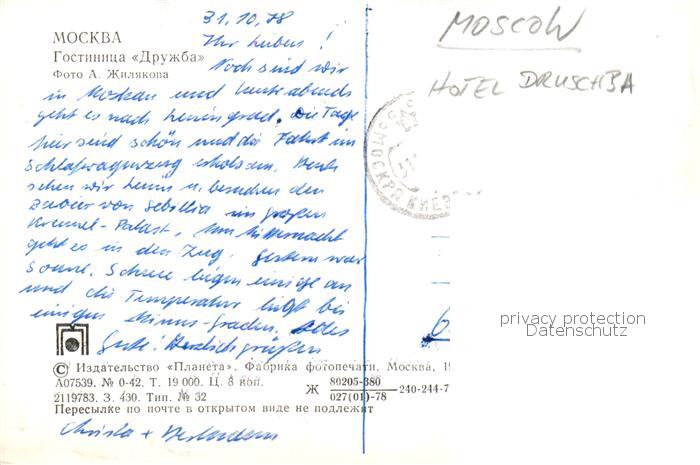 31.10.78
МОСКВА
Гостиница «Дружба»
Фото А. Жилякова
Ihr Lieben!
Noch sind wir
in Moskau und heute abends
geht es nach Leningrad. Die Tage
hier sind schön und die Fahrt im
Schlafwagenzug erholsam. Heute
sehen wir Lenin u. besuchen den
Babier von Sebillia im großen
Kremel-Palast. Um Mitternacht
geht es in den Zug. Gestern war
Sonne. Schnee liegen einige cm
und die Temperatur liegt bis
einigen Minus-Graden. Alles
Gute! Herzlich grüßen
Christa +
MOSCOW
HOTEL DRUSCHBA
МОСКВА
privacy protection
Datenschutz
© Издательство «Планета». Фабрика фотопечати. Москва, 19
А07539. № 0-42. Т. 19 000. Ц. 8 коп.
2119783. З. 430. Тип. № 32
Ж 80205-380
027(01)-78
240-244-7
Пересылке по почте в открытом виде не подлежит